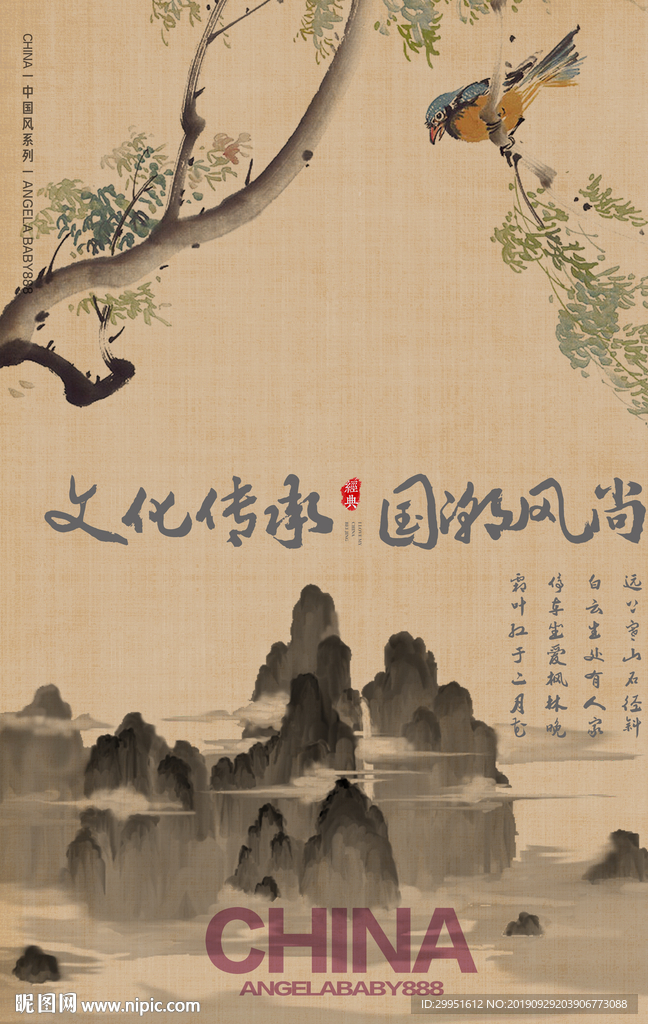 CHINA | 中国风系列 | ANGELA BABY888
文化传承 經典 国潮风尚
远上寒山石径斜
白云生处有人家
停车坐爱枫林晚
霜叶红于二月花
CHINA
ANGELABABY888
昵图网 www.nipic.com
ID:29951612 NO:20190929203906773088